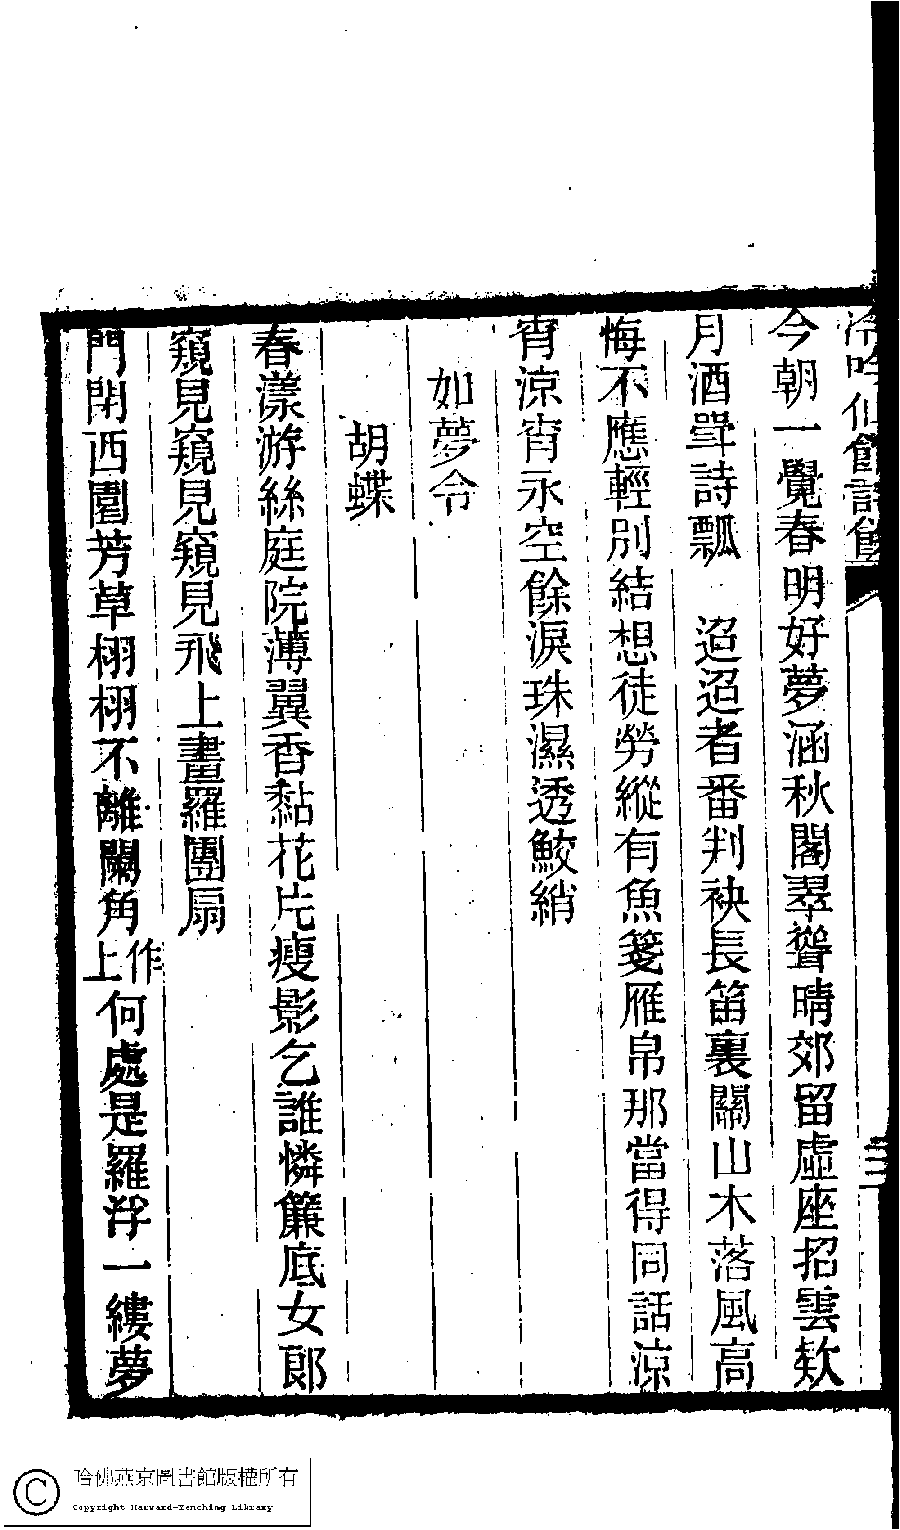 冷吟仙館詩餘
三
今朝一覺春明好夢涵秋閣翠聳晴郊留虛座招雲欸
月酒斝詩瓢　迢迢者番判袂長笛裏關山木落風高
悔不應輕別結想徒勞縱有魚箋雁帛那當得同話涼
宵涼宵永空餘淚珠濕透鮫綃
如夢令
胡蝶
春漾游絲庭院薄翼香黏花片瘦影乞誰憐簾底女郎
窺見窺見窺見飛上畫羅團扇
門閉西園芳草栩栩不離闌角作上何處是羅浮一縷夢
哈佛燕京圖書館版權所有
Copyright Harvard-Yenching Library